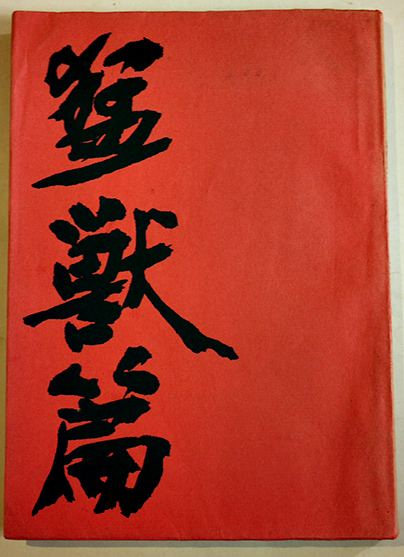 猛獣篇